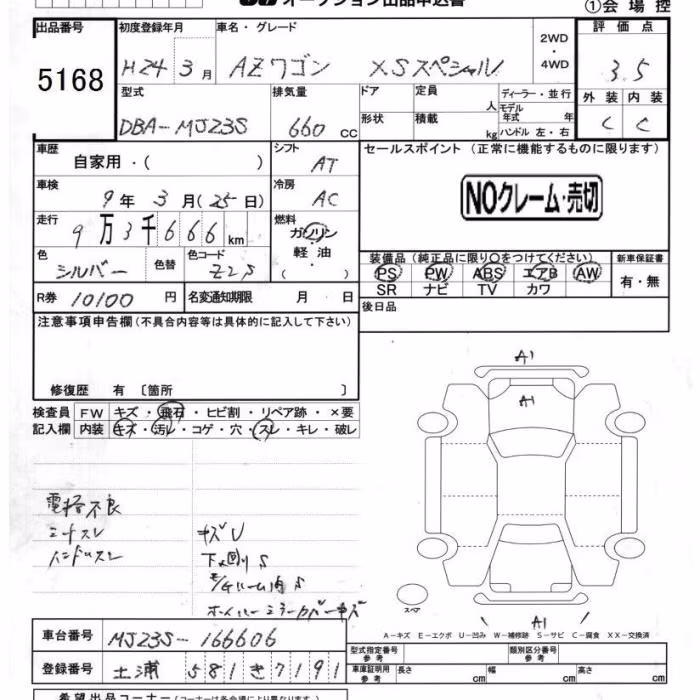 オークション出品申込書
①会場控
出品番号 5168
初度登録年月 H24 3月
車名・グレード AZワゴン XSスペシャル
2WD・4WD
評価点 3.5
型式 DBA-MJ23S
排気量 660 cc
ドア 形状
定員 人 積載 kg
ディーラー・並行
モデル年式 年
ハンドル 左・右
外装 C 内装 C
車歴 自家用・( )
シフト AT
セールスポイント (正常に機能するものに限ります)
車検 9年3月(25日)
冷房 AC
NOクレーム・売切
走行 9万3千666km
燃料 ガソリン 軽油 ( )
色 シルバー 色替 色コード Z2S
装備品 (純正品に限り○をつけてください)
新車保証書
PS PW ABS エアB AW
有・無
SR ナビ TV カワ
R券 10100 円 名変通知期限 月 日
後日品
注意事項申告欄 (不具合内容等は具体的に記入して下さい)
修復歴 有 〔箇所 〕
検査員記入欄
FW キズ・飛石・ヒビ割・リペア跡・×要
内装 キズ・汚レ・コゲ・穴・スレ・キレ・破レ
A1
A1
電格不良
シートスレ
ハンドルスレ
キズU
下廻りS
E/GルームS
ホイールミラーカバーキズ
スペア
A1
A-キズ E-エクボ U-凹み W-補修跡 S-サビ C-腐食 XX-交換済
車台番号 MJ23S-166606
型式指定番号 参考
類別区分番号 参考
登録番号 土浦 581 き 7191
車庫証明用 参考 長さ cm 幅 cm 高さ cm
希望出品コーナー